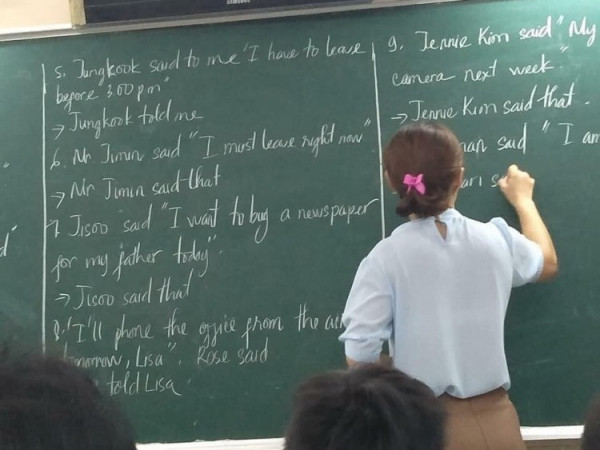 SAMSUNG
5. Jungkook said to me "I have to leave
before 3.00 pm"
→ Jungkook told me
6. Mr Jimin said "I must leave right now"
→ Mr Jimin said that
7. Jisoo said "I want to buy a newspaper
for my father today".
→ Jisoo said that
8. "I'll phone the office from the
tomorrow, Lisa", Rose said
told Lisa
9. Jennie Kim said "My
camera next week"
→ Jennie Kim said that.
said "I am